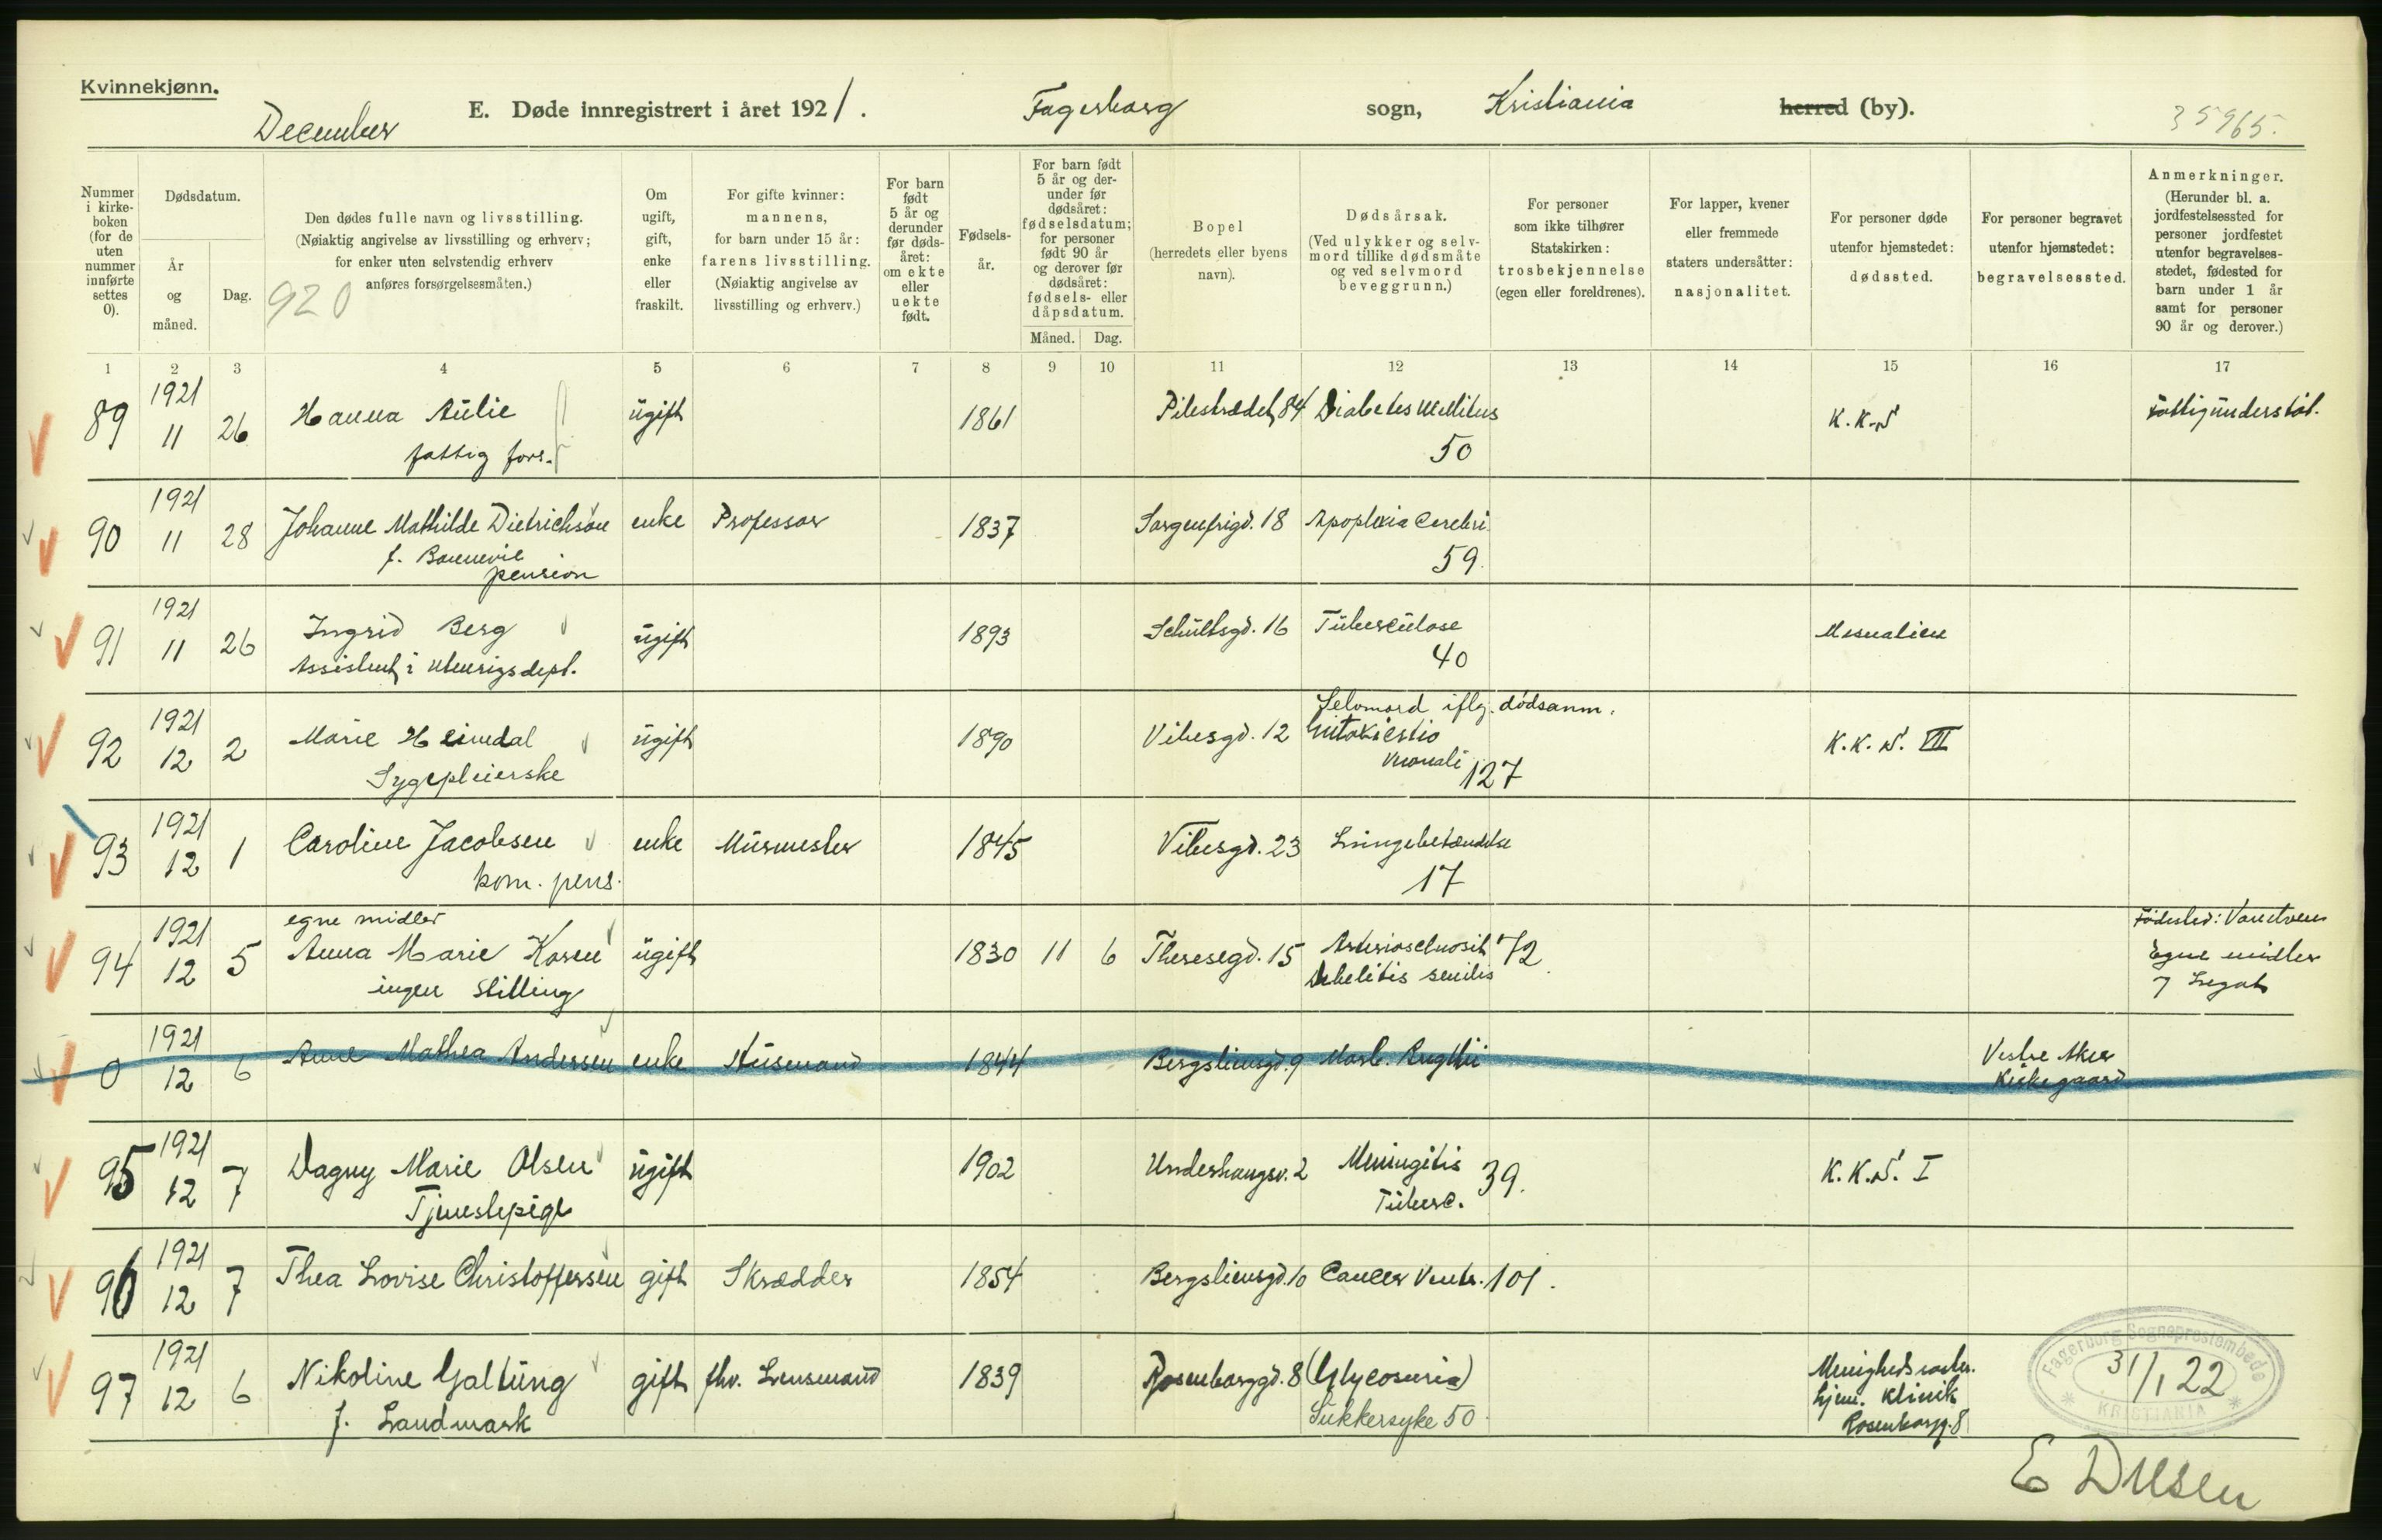 Kvinnekjønn.
December
E. Døde innregistrert i året 1921.
Fagerborg sogn, Kristiania herred (by).
35965.
Nummer i kirkeboken (for de uten nummer innførte settes 0).
Dødsdatum.
År og måned.
Dag.
Den dødes fulle navn og livsstilling.
(Nøiaktig angivelse av livsstilling og erhverv; for enker uten selvstendig erhverv anføres forsørgelsesmåten.)
920
Om ugift, gift, enke eller fraskilt.
For gifte kvinner: mannens, for barn under 15 år: farens livsstilling. (Nøiaktig angivelse av livsstilling og erhverv.)
For barn født 5 år og derunder før dødsåret: om ekte eller uekte født.
Fødselsår.
For barn født 5 år og derunder før dødsåret: fødselsdatum; for personer født 90 år og derover før dødsåret: fødsels- eller dåpsdatum.
Måned. Dag.
Bopel (herredets eller byens navn).
Dødsårsak. (Ved ulykker og selvmord tillike dødsmåte og ved selvmord beveggrunn.)
For personer som ikke tilhører Statskirken: trosbekjennelse (egen eller foreldrenes).
For lapper, kvener eller fremmede staters undersåtter: nasjonalitet.
For personer døde utenfor hjemstedet: dødssted.
For personer begravet utenfor hjemstedet: begravelsessted.
Anmerkninger. (Herunder bl. a. jordfestelsessted for personer jordfestet utenfor begravelsesstedet, fødested for barn under 1 år samt for personer 90 år og derover.)
1 2 3 4 5 6 7 8 9 10 11 12 13 14 15 16 17
89 1921 11 26 Hanna Aulie ugift 1861 Pilestrædet 84 Diabetes Mellitus K.K.S fattigunderstøt.
fattig fors. 50
90 1921 11 28 Johanne Mathilde Dietrichson enke Professor 1837 Sorgenfrigd. 18 Apoplexia Cerebri
f. Bonnevie 59.
pension
91 1921 11 26 Ingrid Berg ugift 1893 Schultsgd. 16 Tuberculose Mesnalien
Assistent i Utenrigsdept. 40
Selvmord iflg. dødsanm.
92 1921 12 2 Marie Heimdal ugift 1890 Vibesgd. 12 K.K.S. VII
Sygepleierske 127
93 1921 12 1 Caroline Jacobsen enke Murmester 1845 Vibesgd. 23 Lungebetændelse
kom. pens. 17
egne midler
94 1921 12 5 Anna Marie Koren ugift 1830 11 6 Theresegd. 15 72 Fødested:
ingen Stilling senilis Egne midler
Legat
0 1921 12 6 Anne Mathea Andersen enke Husmand 1844 Bergsliensgd. 9 Vestre Aker
Kirkegaard
95 1921 12 7 Dagny Marie Olsen ugift 1902 Underhaugsv. 2 Meningitis 39. K.K.S. I
Tjenestepige Tuberc.
96 1921 12 7 Thea Lovise Christoffersen gift Skrædder 1854 Bergsliensgd. 10 Cancer Ventr. 101.
97 1921 12 6 Nikoline Galtung gift fhv. Lensmand 1839 Rosenborggd. 8 (Glycosuria)
f. Landmark Sukkersyke 50.
Klinik
Rosenborgg. 8
Fagerborg Sogneprestembede
KRISTIANIA
31/1 22